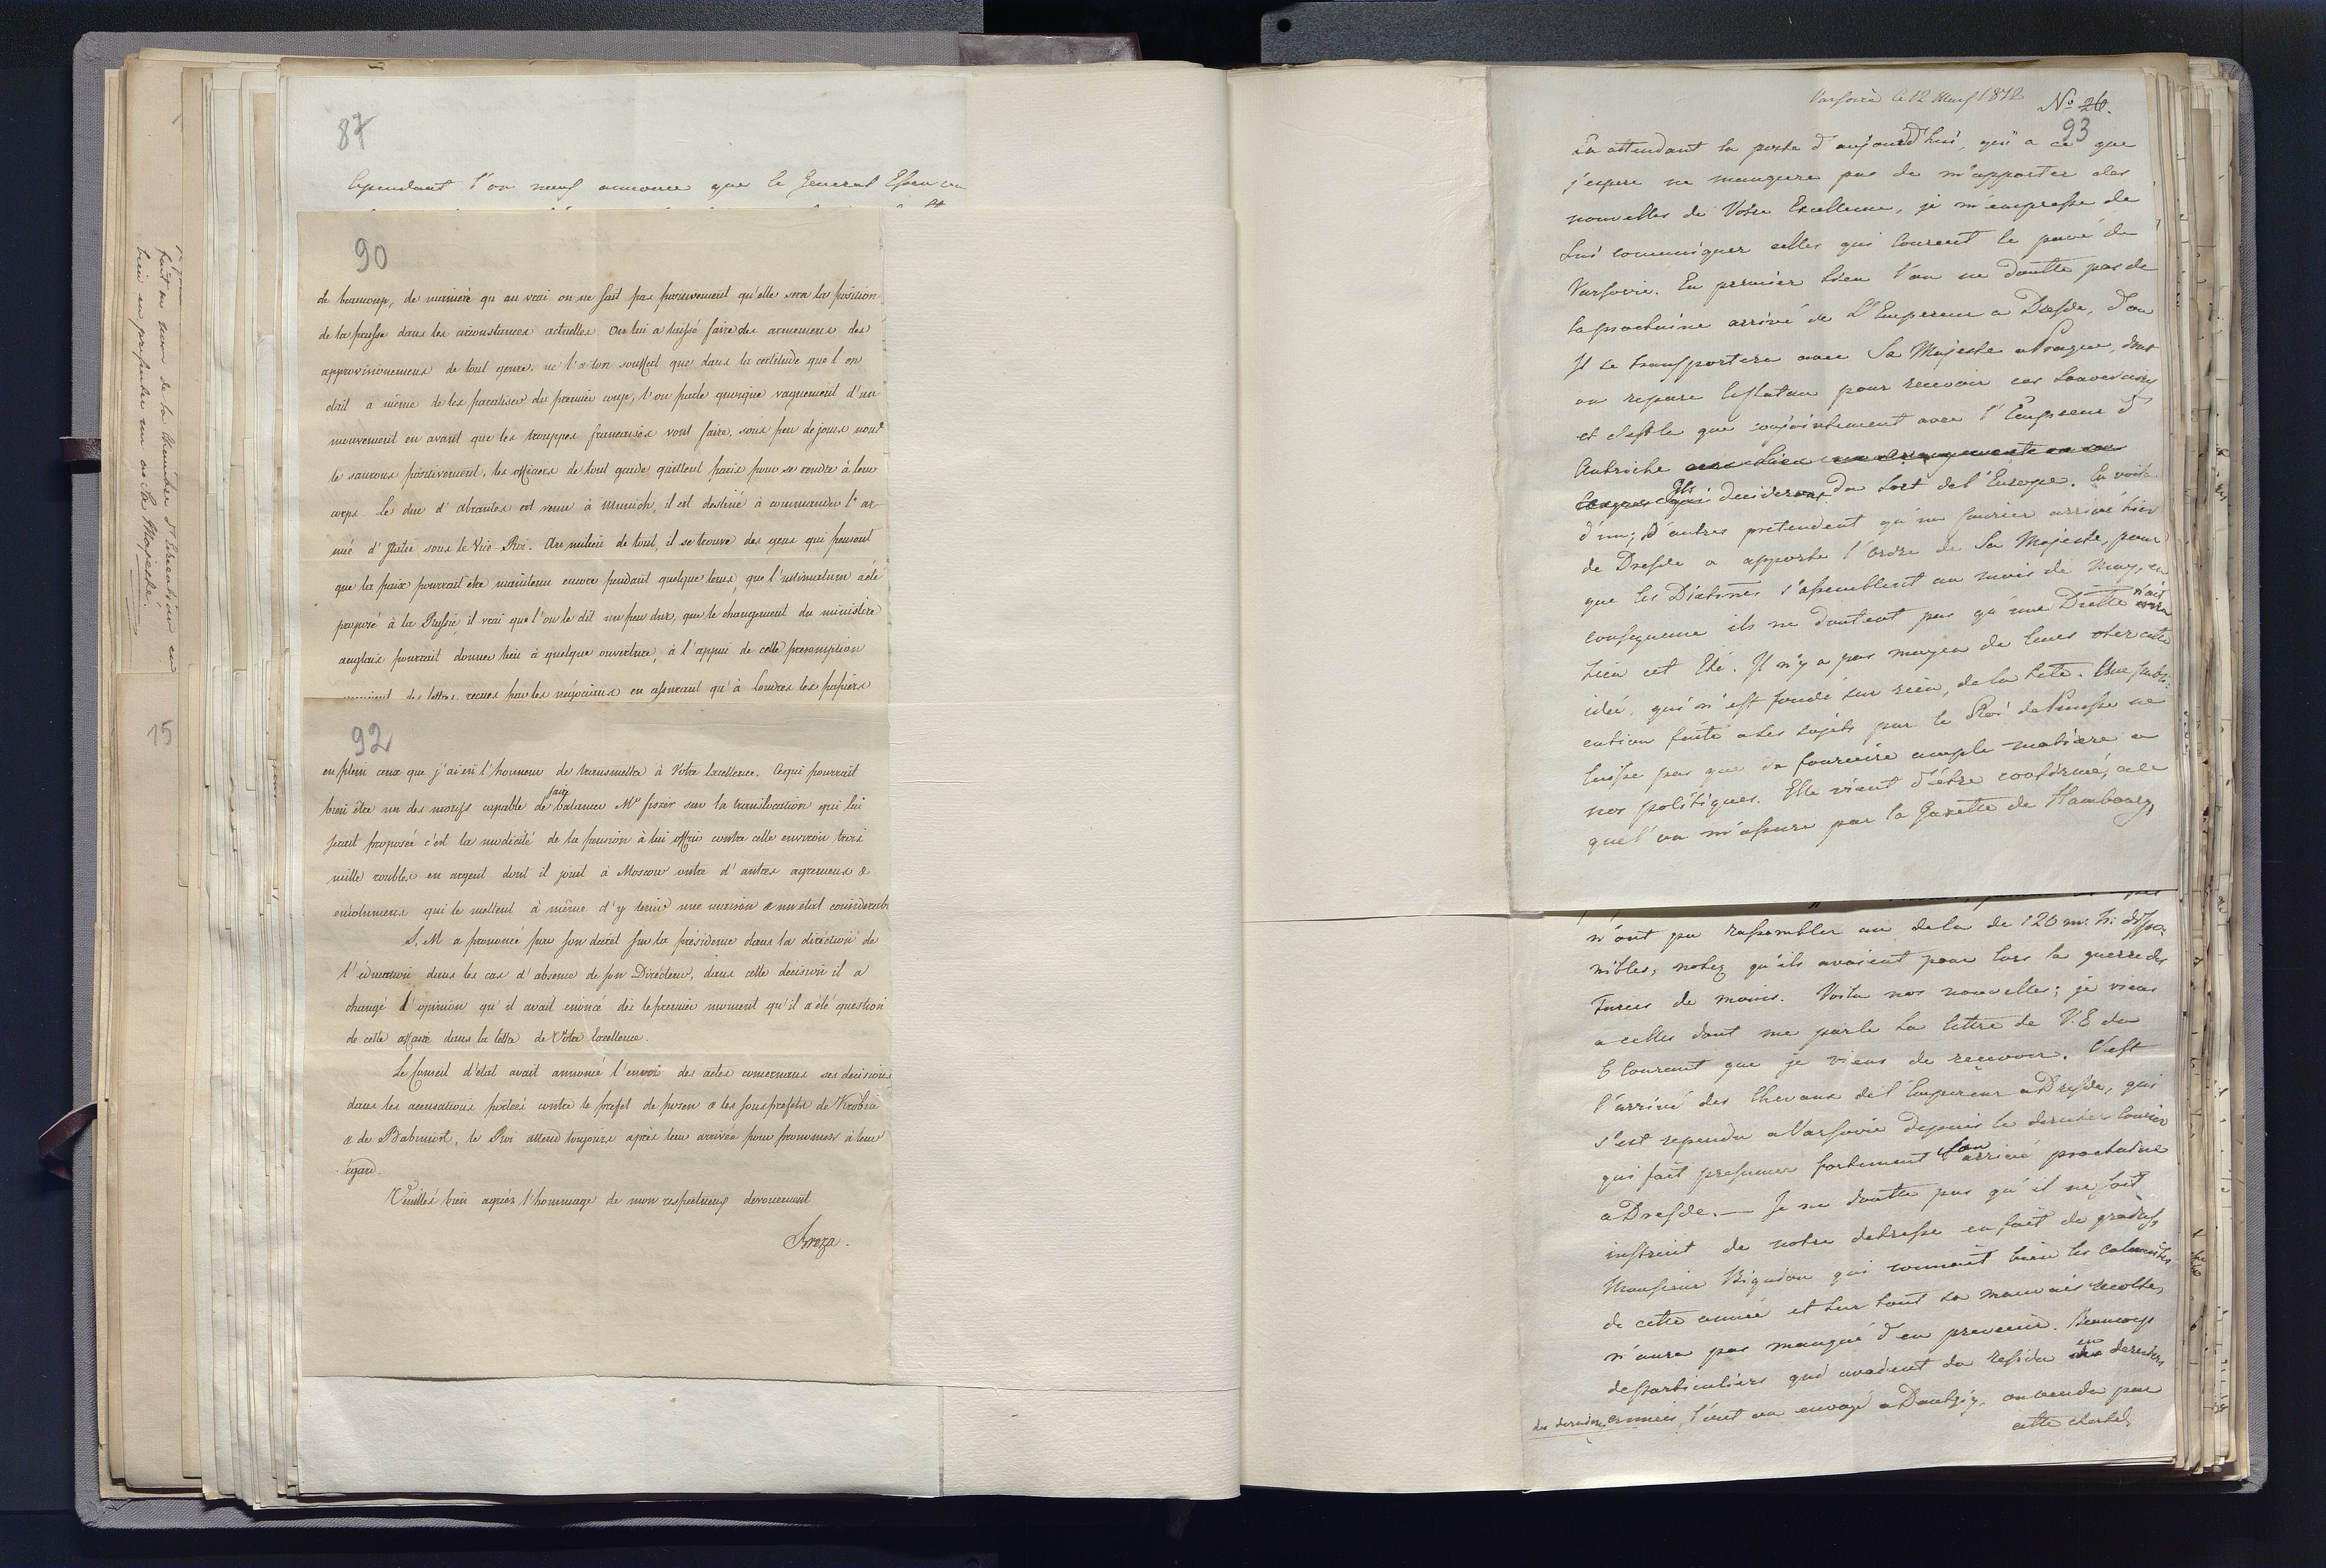 faut au nom de la Membre d'Education en
bien en presenter un a Sa Majesté.
75
87
Cependant l'on nous annonce que le General Essen
90
de beaucoup, de maniere qu au vrai on ne sait pas positivement qu'elle sera la position
de la prusse dans les circonstances actuelles. On lui a laissé faire des armemens des
approvisionnemens de tout genre. ne l'a ton souffert que dans la certitude que l on
était a même de les paraliser du premier coup, l'on parle quoique vaguement d'un
mouvement en avant que les trouppes francaises vont faire, sous peu de jours nous
le saurons positivement. les officiers de tout grade quittent paris pour se rendre à leur
corps. Le duc d' abrantes est venu à Munich, il est destiné à commander l' ar-
mée d' Italie sous le Vice-Roi. Au milieu de tout, il se trouve des gens qui pensent
que la paix pourrait etre maintenue encore pendant quelque tems, que l'ultimatum a été
proposé à la Russie, il vrai que l'on le dit un peu dur, que le changement du ministere
anglais pourrait donner lieu à quelque ouverture, à l'appui de cette presomption
des lettres recues par les négocians en assurant qu'à londres les papiers
92
en plein ceux que j'ai eu l'honneur de transmettre à Votre Excellence. Ce qui pourrait
bien être un des motifs capable de faire balancer Mr fiszer sur la translocation qui lui
serait proposée c'est la modicité de la pension à lui offrir contre celle environ trois
mille roubles en argent dont il jouit à Moscow outre d' autres agremens &
emolumens qui le mettent à même d'y tenir une maison & un etat considerable
S. M a prononcé par son decret sur la présidence dans la direction de
l'éducation dans les cas d' absence de son Directeur, dans cette decision il a
changé d'opinion qu' il avait enoncé dès le premier moment qu'il a été question
de cette affaire dans la lettre de Votre Excellence.
Le Conseil d'état avait annoncé l'envoi des actes concernans ses decisions
dans les accusations portées contre le prefet de posen & les sousprefets de Krobia
& de Babimost, le Roi attend toujours après leur arrivée pour prononcer à leur
egard.
Veuillés bien agréer l'hommage de mon respectueux devouement
Breza.
Varsovie le 12 Mars 1812 No 26.
93
En attendant la poste d'aujourd'hui, qui a ce que
j'espere ne manquera pas de m'apporter des
nouvelles de Votre Excellence, je m'empresse de
Lui communiquer celles qui courent le pavé de
Varsovie. En premier lieu l'on ne doutte pas de
la prochaine arrivé de L'Empereur a Dresde, d'ou
Il se transportera avec Sa Majesté a Prague, dont
on repare le chateau pour recevoir ces Souverains
et c'est la que conjointement avec l'Empereur d'
Autriche
Ils decideront du sort de l'Europe. En voila
d'un; d'autres pretendent qu'un Courier arrivé hier
de Dresde a apporté l'ordre de Sa Majesté, pour
que les Diétines s'assemblent au mois de May, en
consequence ils ne doutent pas qu'une Diette n'ait
lieu cet Eté. Il n'y a pas moyen de leurs oter cette
idée, qui n'est fondé sur rien, de la tete. Une publi-
cation faite a ses sujets par le Roi de Prusse ne
laisse pas que de fournire ample matiere a
nos politiques. Elle vient d'être confirmé, a ce
que l'on m'assure par la Gazette de Hambourg,
n'ont pu rassembler au dela de 120 m. h. dispo-
nibles, notez qu'ils avoient pour lors la guerre des
Turcs de moins. Voila nos nouvelles; je viens
a celles dont me parle la lettre de V.E du
6 Courent que je viens de recevoir. C'est
l'arrivé des Chevaux de l'Empereur a Dresde, qui
s'est rependu a Varsovie depuis le dernier Courier
qui fait presumer fortement son arrivé prochaine
a Dresde. — Je ne doutte pas qu'il ne soit
instruit de notre detresse en fait de grains,
Monsieur Bignon qui connait bien les calamités
de cette année et sur tout sa mauvaise recolte,
n'aura pas manqué d'en prevenir. Beaucoup
des particuliers qui avoient du residu en
des dernieres années, l'ont ou envoyé a Dantzig, ou vendu par
cette cherté,